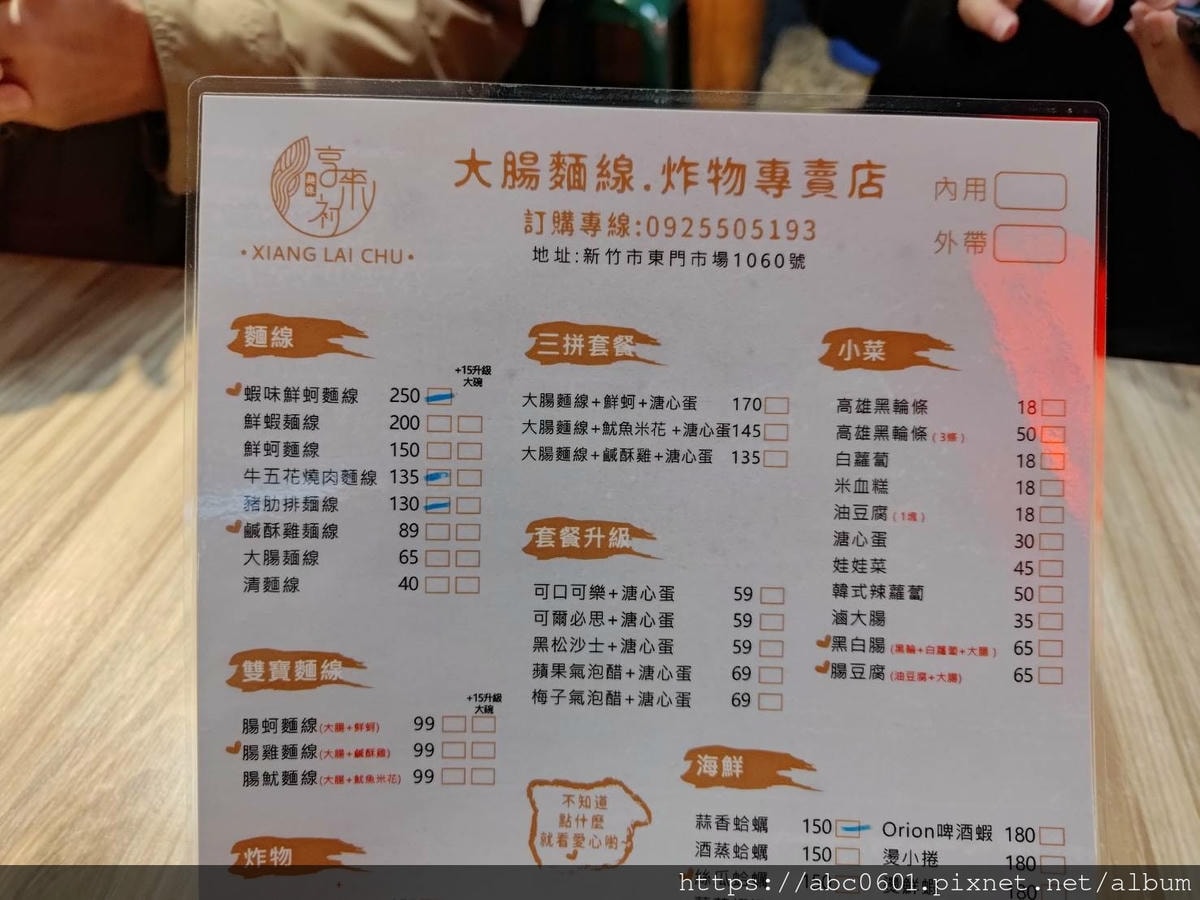 享來初
XIANG LAI CHU
大腸麵線.炸物專賣店
訂購專線:0925505193
地址:新竹市東門市場1060號
內用
外帶
麵線
+15升級
大碗
蝦味鮮蚵麵線 250
鮮蝦麵線 200
鮮蚵麵線 150
牛五花燒肉麵線 135
豬肋排麵線 130
鹹酥雞麵線 89
大腸麵線 65
清麵線 40
雙寶麵線
+15升級
大碗
腸蚵麵線(大腸+鮮蚵) 99
腸雞麵線(大腸+鹹酥雞) 99
腸魷麵線(大腸+魷魚米花) 99
炸物
三拼套餐
大腸麵線+鮮蚵+溏心蛋 170
大腸麵線+魷魚米花 +溏心蛋145
大腸麵線+鹹酥雞+溏心蛋 135
套餐升級
可口可樂+溏心蛋 59
可爾必思+溏心蛋 59
黑松沙士+溏心蛋 59
蘋果氣泡醋+溏心蛋 69
梅子氣泡醋+溏心蛋 69
不知道
點什麼
就看愛心喲~
小菜
高雄黑輪條 18
高雄黑輪條(3條) 50
白蘿蔔 18
米血糕 18
油豆腐(1塊) 18
溏心蛋 30
娃娃菜 45
韓式辣蘿蔔 50
滷大腸 35
黑白腸(黑輪+白蘿蔔+大腸) 65
腸豆腐(油豆腐+大腸) 65
海鮮
蒜香蛤蠣 150
酒蒸蛤蠣 150
絲瓜蛤蠣 150
Orion啤酒蝦 180
燙小捲 180
180
https://abc0601.pixnet.net/album